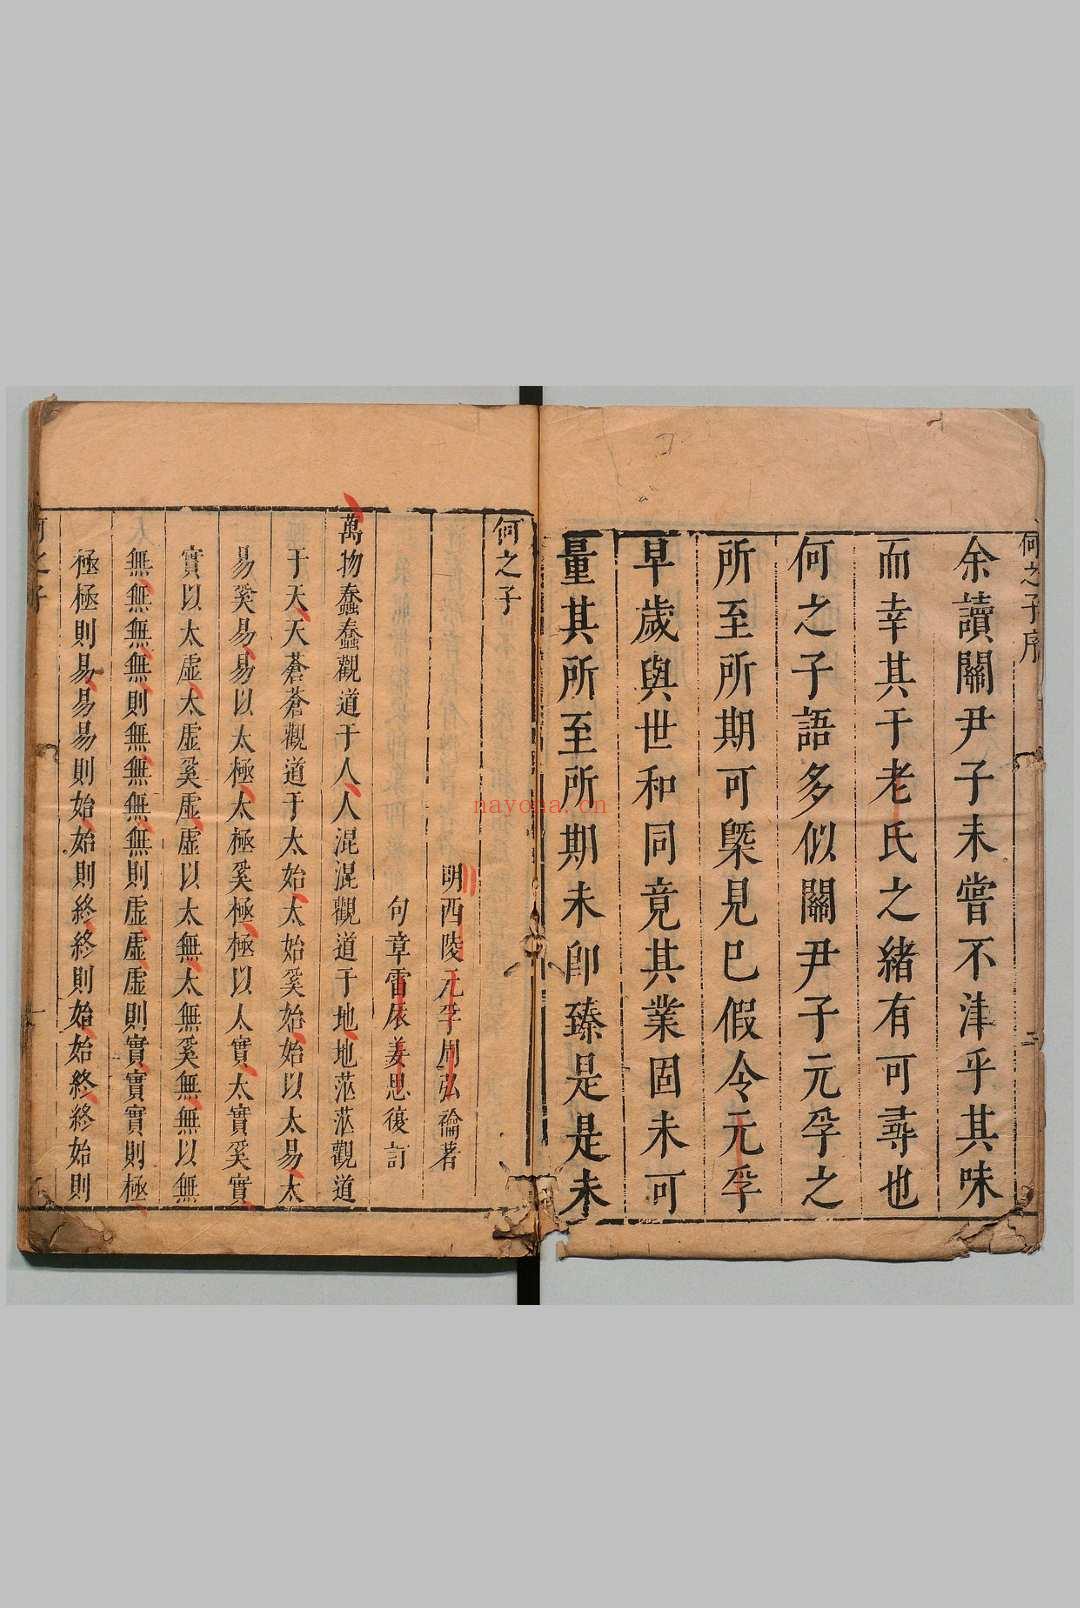 何之子序
余讀關尹子未嘗不津乎其味
而幸其于老氏之緒有可尋也
何之子語多似關尹子元孚之
所至所期可槩見巳假令元孚
早歲與世和同竟其業固未可
量其所至所期未卽臻是是未
何之子
明西陵元孚周弘禴著
句章雷𠂢姜思復訂
萬物蠢蠢觀道于人人混混觀道于地地茫茫觀道
于天天蒼蒼觀道于太始太始奚始始以太易太
易奚易易以太極太極奚極極以人實太實奚實
實以太虛太虛奚虛虛以太無太無奚無無以無
無無無無則無無無無則虛虛虛則實實實則極
極極則易易易則始始則終終則始始終終始則
何之子
nayona.cn